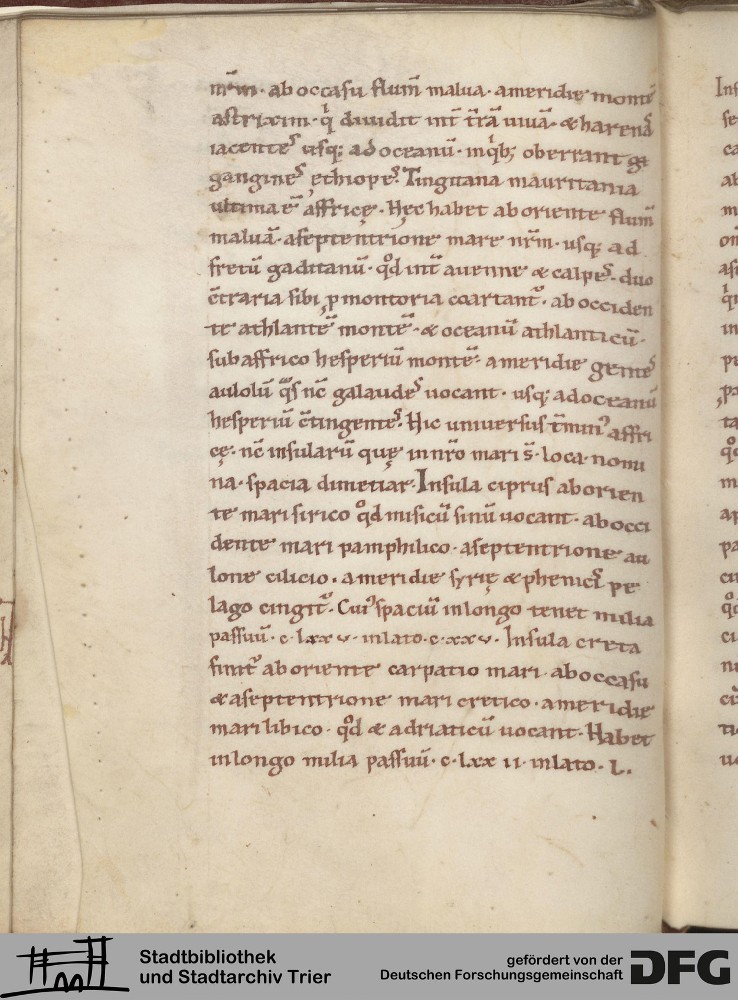 nr̄m· ab occasu flum̄ malua· a meridie montē
astrixim· q̇ diuidit int̄ t̄rā uiuā· & harenā
iacentes usq; ad oceanū· in q̇b; oberrant ga
gangines ęthiopes. Tingitana mauritania
ultima ē affricę. Hęc habet ab oriente flum̄
maluā· a septentrione mare nr̄m· usq; ad
fretū gaditanū· qd̄ int̄ auenne & calpes· duo
c̄traria sibi ꝓmontoria coartant᷑· ab occiden
te athlantē montē· & oceanū athlanticū·
sub affrico hesperiū montē· a meridie gentes
aulolū q̄s nc̄ galaudes uocant· usq; ad oceanū
hesperiū c̄tingentes. Hic uniuersus t̄minꝰ affri
cę· nc̄ insularū quę in nr̄o mari s̄· loca· nomi
na· spacia dimetiar. Insula ciprus ab orien
te mari sirico qd̄ misicū sinū uocant· ab occi
dente mari pamphilico· a septentrione au
lone cilicio· a meridie syrię & phenicis pe
lago cingit᷑. Cuiꝰ spaciū in longo tenet milia
passuū· c· lxx v· in lato· c· xx v· Insula creta
finit᷑ ab oriente carpatio mari· ab occasu
& a septentrione mari cretico· a meridie
mari libico· qd̄ & adriaticū uocant· Habet
in longo milia passuū· c· lxx ii· in lato· L·
Stadtbibliothek
und Stadtarchiv Trier
gefördert von der
Deutschen Forschungsgemeinschaft
DFG